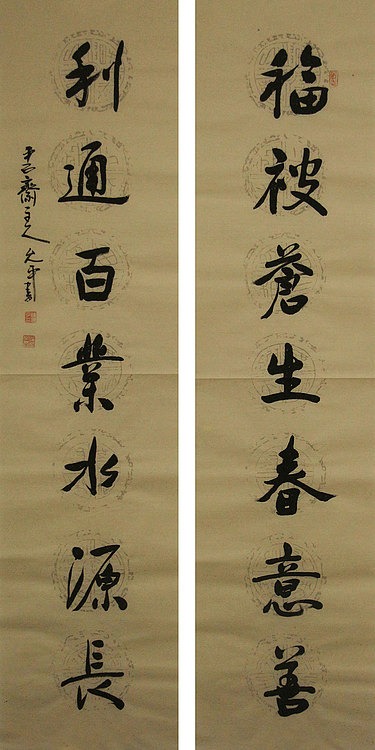 福被蒼生春意善
利通百業水源長
齋主人允平書